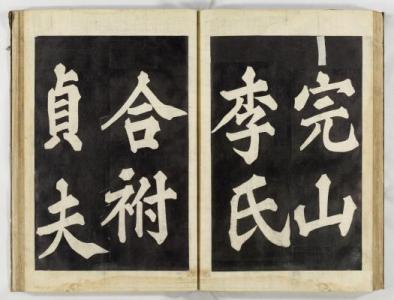 完山
李氏
合祔
貞夫